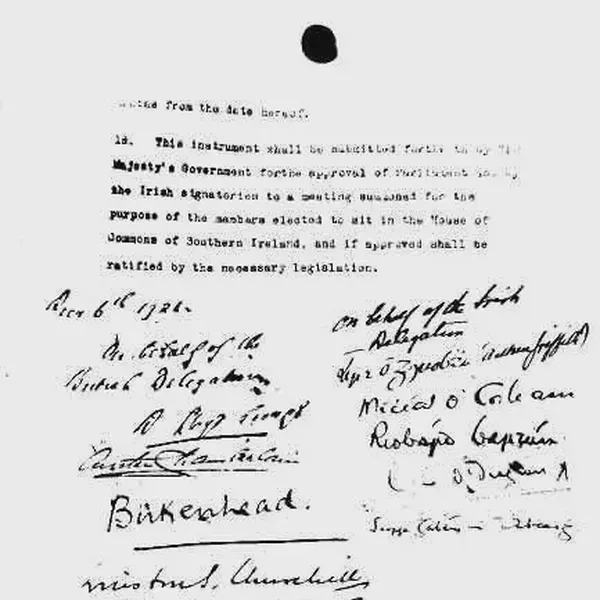 from the date hereof.
18. This instrument shall be submitted forthwith by His
Majesty's Government for the approval of Parliament and by
the Irish signatories to a meeting summoned for the
purpose of the members elected to sit in the House of
Commons of Southern Ireland, and if approved shall be
ratified by the necessary legislation.
Decr 6th 1921.
On behalf of the
British Delegation
D Lloyd George
Austen Chamberlain
Birkenhead.
Winston S. Churchill
On behalf of the Irish
Delegation
Art Ó Gríobhtha (Arthur Griffith)
Mícéal Ó Coileain
Riobárd Bartún